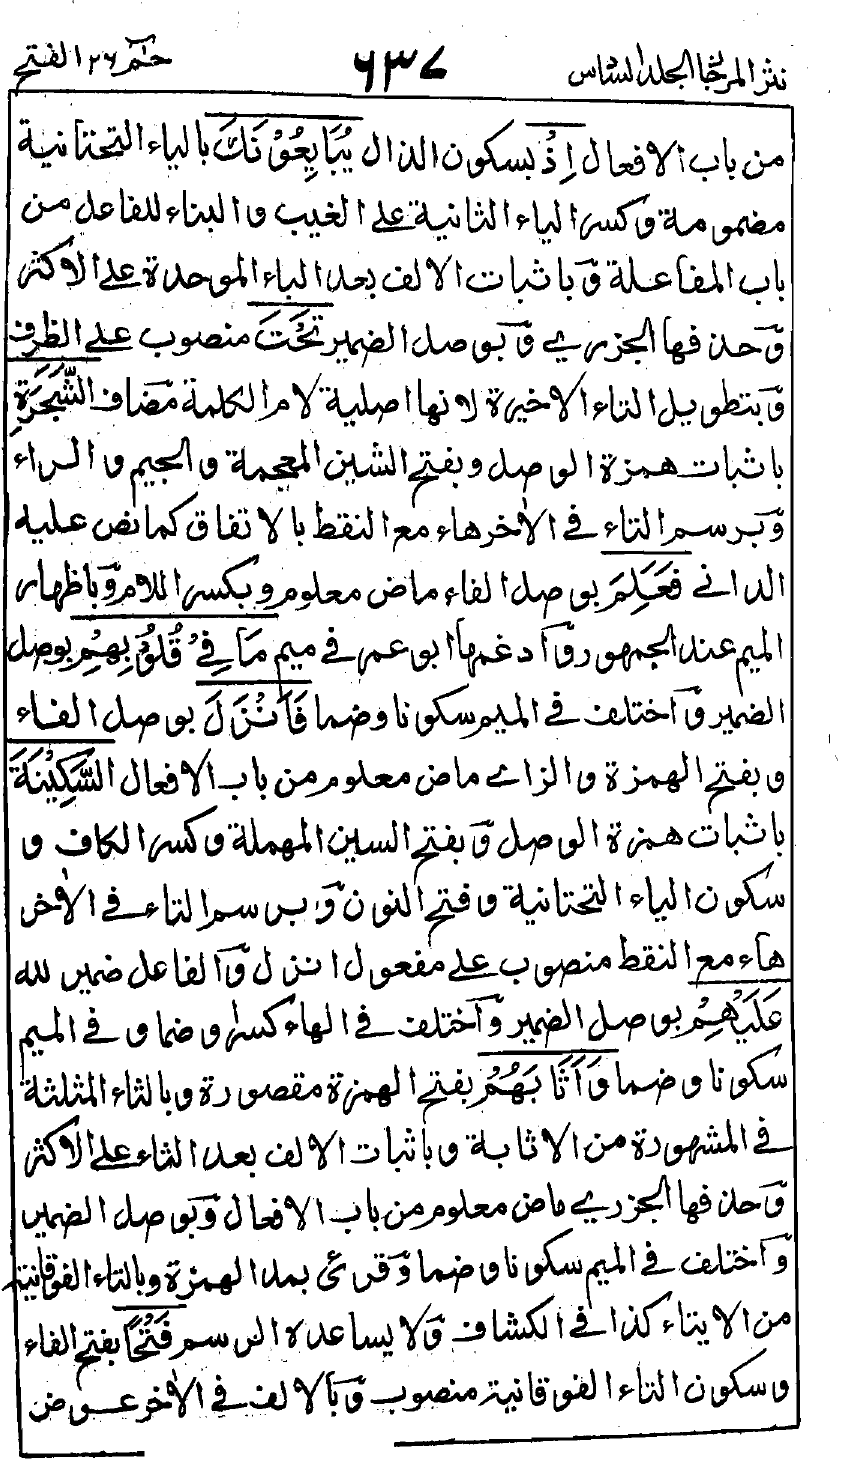 نثر المرجان المجلد السادس ٦٣٧ حٰمٓ ٢٦ الفتح
من باب الافعال اِذْ بسكون الذال يُبَايِعُوْنَكَ بالياء التحتانية
مضمومة وكسر الياء الثانية على الغيب والبناء للفاعل من
باب المفاعلة وباثبات الالف بعد الباء الموحدة على الاكثر
وحذفها الجزري وبوصل الضمير تَحْتَ منصوب على الظرف
وبتطويل التاء الاخيرة لانها اصلية لام الكلمة مضاف الشَّجَرَةِ
باثبات همزة الوصل وبفتح الشين المعجمة والجيم والراء
وبرسم التاء في الاٰخر هاء مع النقط بالاتفاق كما نص عليه
الداني فَعَلِمَ بوصل الفاء ماض معلوم وبكسر اللام وباظهار
الميم عند الجمهور وادغمها ابو عمر في ميم مَا فِيْ قُلُوْبِهِمْ بوصل
الضمير واختلف في الميم سكونا وضما فَاَنْزَلَ بوصل الفاء
وبفتح الهمزة والزاي ماض معلوم من باب الافعال السَّكِيْنَةَ
باثبات همزة الوصل وبفتح السين المهملة وكسر الكاف و
سكون الياء التحتانية وفتح النون وبرسم التاء في الاٰخر
هاء مع النقط منصوب على مفعول انزل والفاعل ضمير لله
عَلَيْهِمْ بوصل الضمير واختلف في الهاء كسرا وضما وفي الميم
سكونا وضما وَاَثَابَهُمْ بفتح الهمزة مقصورة وبالثاء المثلثة
في المشهورة من الاثابة وباثبات الالف بعد الثاء على الاكثر
وحذفها الجزري ماض معلوم من باب الافعال وبوصل الضمير
واختلف في الميم سكونا وضما وقرئ بمد الهمزة وبالتاء الفوقانية
من الايتاء كذا في الكشاف ولا يساعده الرسم فَتْحًا بفتح الفاء
وسكون التاء الفوقانية منصوب وبالالف في الاٰخر عوض